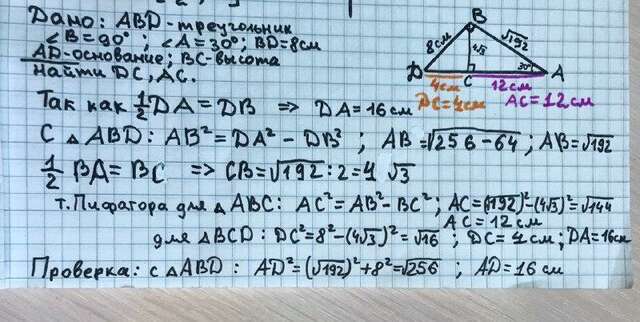 Дано: ABD-треугольник
∠B=90°; ∠A=30°; BD=8см
AD-основание; BC-высота
Найти DC, AC.
B
8см
4√3
√192
30°
D
C
A
4см
12см
DC=4см
AC=12см
Так как ½DA=DB => DA=16см
С △ABD: AB²=DA²-DB²; AB=√256-64; AB=√192
½BA=BC => CB=√192:2=4√3
т. Пифагора для △ABC: AC²=AB²-BC²; AC=(√192)²-(4√3)²=√144
AC=12см
для △BCD: DC²=8²-(4√3)²=√16; DC=4см; DA=16см
Проверка: с △ABD: AD²=(√192)²+8²=√256; AD=16см